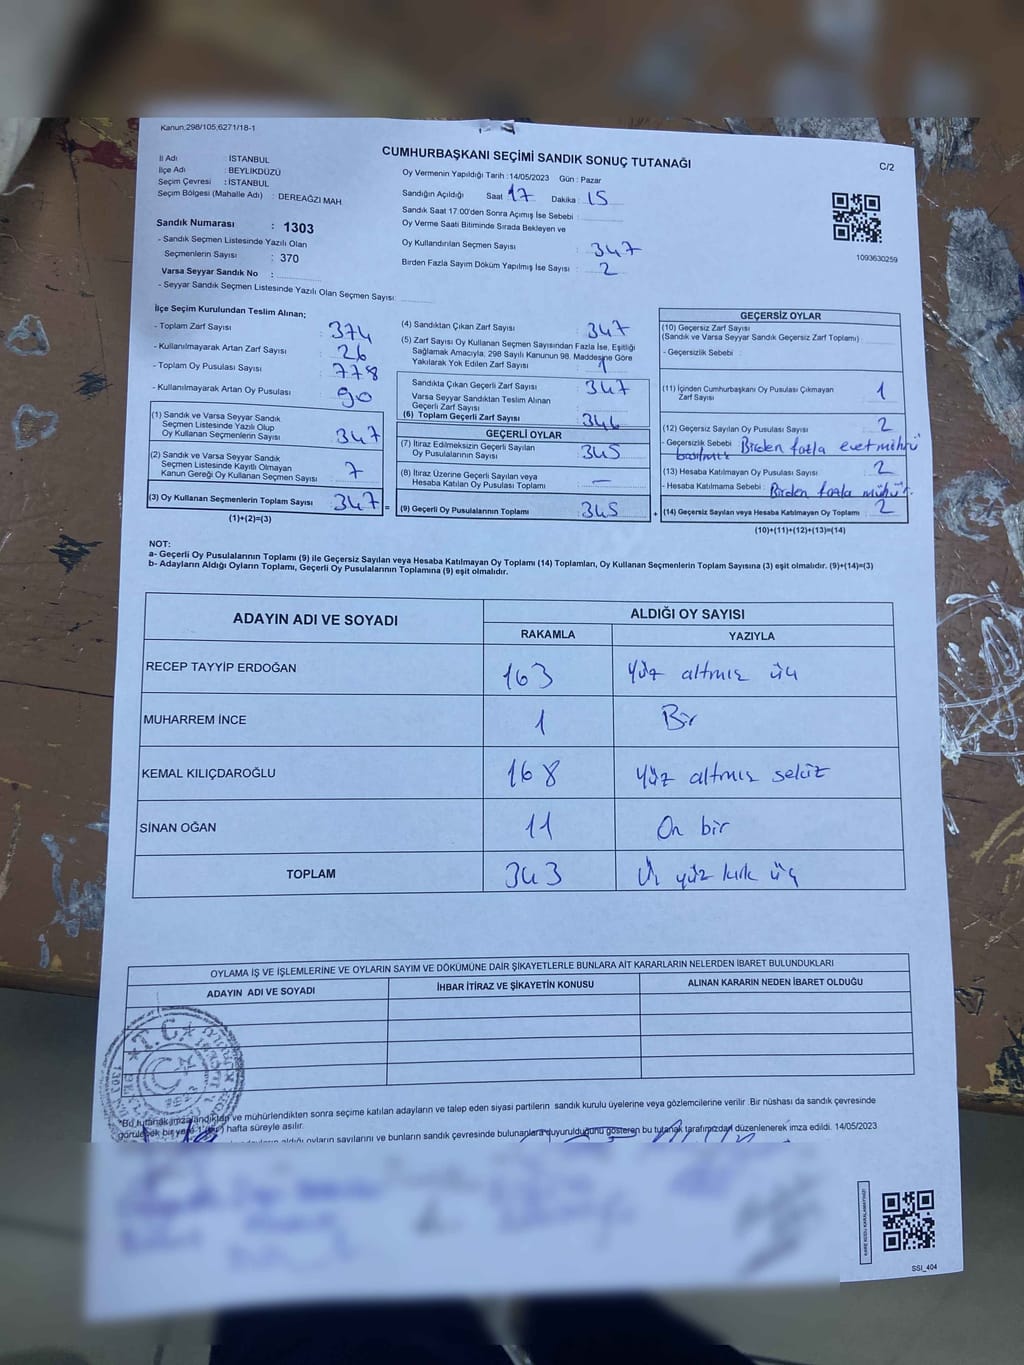 Kanun:298/105,6271/18-1
CUMHURBAŞKANI SEÇİMİ SANDIK SONUÇ TUTANAĞI
C/2
İl Adı : İSTANBUL
İlçe Adı : BEYLİKDÜZÜ
Seçim Çevresi : İSTANBUL
Seçim Bölgesi (Mahalle Adı) : DEREAĞZI MAH.
Sandık Numarası : 1303
- Sandık Seçmen Listesinde Yazılı Olan
Seçmenlerin Sayısı : 370
Varsa Seyyar Sandık No :
- Seyyar Sandık Seçmen Listesinde Yazılı Olan Seçmen Sayısı:
Oy Vermenin Yapıldığı Tarih : 14/05/2023 Gün : Pazar
Sandığın Açıldığı Saat 17 Dakika : 15
Sandık Saat 17:00'den Sonra Açımış İse Sebebi :
Oy Verme Saati Bitiminde Sırada Bekleyen ve
Oy Kullandırılan Seçmen Sayısı 347
Birden Fazla Sayım Döküm Yapılmış İse Sayısı : 2
1093630259
İlçe Seçim Kurulundan Teslim Alınan;
- Toplam Zarf Sayısı : 374
- Kullanılmayarak Artan Zarf Sayısı : 26
- Toplam Oy Pusulası Sayısı : 778
- Kullanılmayarak Artan Oy Pusulası : 90
(1) Sandık ve Varsa Seyyar Sandık
Seçmen Listesinde Yazılı Olup
Oy Kullanan Seçmenlerin Sayısı : 347
(2) Sandık ve Varsa Seyyar Sandık
Seçmen Listesinde Kayıtlı Olmayan
Kanun Gereği Oy Kullanan Seçmen Sayısı : 7
(3) Oy Kullanan Seçmenlerin Toplam Sayısı : 347 =
(1)+(2)=(3)
(4) Sandıktan Çıkan Zarf Sayısı : 347
(5) Zarf Sayısı Oy Kullanan Seçmen Sayısından Fazla İse, Eşitliği
Sağlamak Amacıyla, 298 Sayılı Kanunun 98. Maddesine Göre
Yakılarak Yok Edilen Zarf Sayısı : 1
Sandıkta Çıkan Geçerli Zarf Sayısı : 347
Varsa Seyyar Sandıktan Teslim Alınan
Geçerli Zarf Sayısı
(6) Toplam Geçerli Zarf Sayısı : 346
GEÇERLİ OYLAR
(7) İtiraz Edilmeksizin Geçerli Sayılan
Oy Pusulalarının Sayısı : 345
(8) İtiraz Üzerine Geçerli Sayılan veya
Hesaba Katılan Oy Pusulası Toplamı : —
(9) Geçerli Oy Pusulalarının Toplamı : 345 +
GEÇERSİZ OYLAR
(10) Geçersiz Zarf Sayısı
(Sandık ve Varsa Seyyar Sandık Geçersiz Zarf Toplamı)
- Geçersizlik Sebebi :
(11) İçinden Cumhurbaşkanı Oy Pusulası Çıkmayan
Zarf Sayısı 1
(12) Geçersiz Sayılan Oy Pusulası Sayısı : 2
- Geçersizlik Sebebi : Birden fazla evet mührü
basılmış
(13) Hesaba Katılmayan Oy Pusulası Sayısı : 2
- Hesaba Katılmama Sebebi : Birden fazla mühür.
(14) Geçersiz Sayılan veya Hesaba Katılmayan Oy Toplamı : 2
(10)+(11)+(12)+(13)=(14)
NOT:
a- Geçerli Oy Pusulalarının Toplamı (9) ile Geçersiz Sayılan veya Hesaba Katılmayan Oy Toplamı (14) Toplamları, Oy Kullanan Seçmenlerin Toplam Sayısına (3) eşit olmalıdır. (9)+(14)=(3)
b- Adayların Aldığı Oyların Toplamı, Geçerli Oy Pusulalarının Toplamına (9) eşit olmalıdır.
ADAYIN ADI VE SOYADI
ALDIĞI OY SAYISI
RAKAMLA YAZIYLA
RECEP TAYYİP ERDOĞAN 163 Yüz altmış üç
MUHARREM İNCE 1 Bir
KEMAL KILIÇDAROĞLU 168 Yüz altmış sekiz
SİNAN OĞAN 11 On bir
TOPLAM 343 Üç yüz kırk üç
OYLAMA İŞ VE İŞLEMLERİNE VE OYLARIN SAYIM VE DÖKÜMÜNE DAİR ŞİKAYETLERLE BUNLARA AİT KARARLARIN NELERDEN İBARET BULUNDUKLARI
ADAYIN ADI VE SOYADI İHBAR İTİRAZ VE ŞİKAYETİN KONUSU ALINAN KARARIN NEDEN İBARET OLDUĞU
T.C.
1303
*Bu tutanak imzalandıktan ve mühürlendikten sonra seçime katılan adayların ve talep eden siyasi partilerin sandık kurulu üyelerine veya gözlemcilerine verilir .Bir nüshası da sandık çevresinde
görülebilecek bir yere 1 (bir) hafta süreyle asılır.
aldığı oyların sayılarını ve bunların sandık çevresinde bulunanlara duyurulduğunu gösteren bu tutanak tarafımızdan düzenlenerek imza edildi. 14/05/2023
KARE KODU KARALAMAYINIZ!
SSI_404